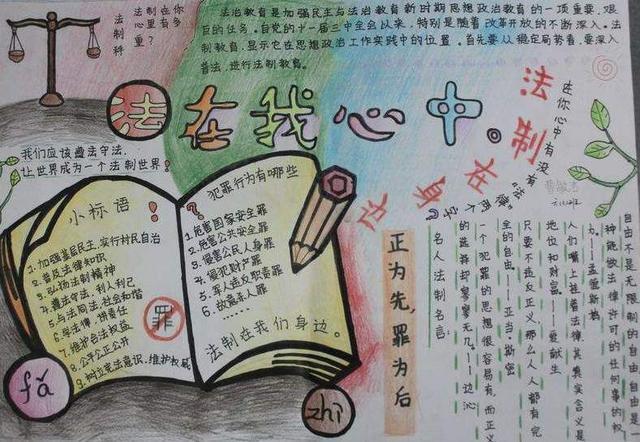 法制在你
心里有多
重？
法制科
法治教育是加强民主与法治教育新时期思想政治教育的一项重要,艰
巨的任务。自党的十一届三中全会以来,特别是随着改革开放的不断深入。法
制教育,显示它在思想政治工作实践中的位置。首先要从稳定局势着,要深入
普法,进行法制教育。
法在我心中。
法制在身边
在你心中有没有
"法律"两个字
我们应该遵法守法,
让世界成为一个法制世界!
小标语!
1.加强基层民主,实行村民自治
2.普及法律知识
3.弘扬法制精神
4.遵法守法,利人利己
5.与法同法,社会和谐
6.学法律,担责任
7.维护合法权益
8.公平公正公开
9.树立宪法意识,维护权威
罪
?犯罪行为有哪些
1.危害国家安全罪
2.危害公共安全罪
3.侵害公民人身罪
4.侵犯财产罪
5.军人违反职责罪
6.故意杀人罪
......
法制在我们身边。
fǎ
zhì
正为先,罪为后
名人法制名言:
一个犯罪的思想很容易有,而正义
的选择却寥寥无几。——边沁
只要不违反正义,那么人人都有完
全的自由。——亚当·斯密
人们嘴上挂着法律,其真实含义是
地位和财富。——爱献生
自由不是无限制的自由,自由是一
种能做法律许可的任何事的权
力。——孟德斯鸠